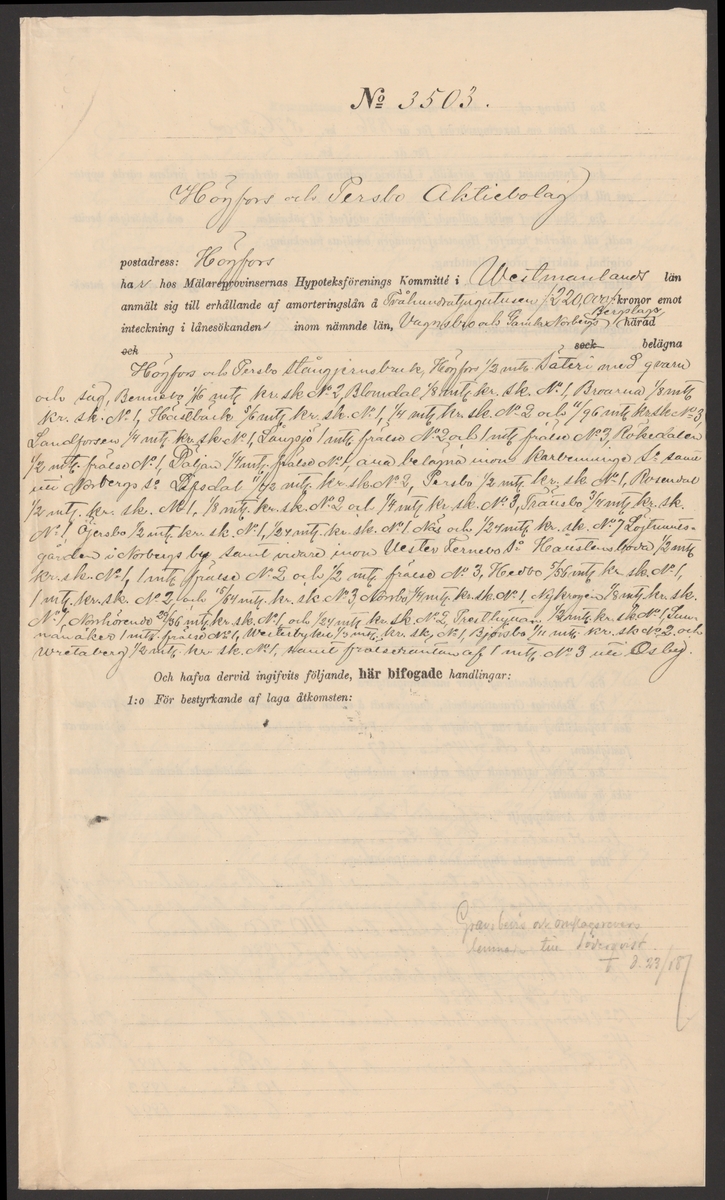 No 3503.
Högfors och Persbo Aktiebolag
postadress: Högfors
har hos Mälareprovinsernas Hypoteksförenings Kommitté i Westmanlands län
anmält sig till erhållande af amorteringslån å Tvåhundratjugutusen /220,000/ kronor emot
Bergslags
inteckning i lånesökandens inom nämnde län, Vagnsbro och Gamla Norbergs härad
och sock belägna
Högfors och Persbo stångjernsbruk, Högfors 1/2 mtl Säteri med qvarn
och såg, Bennebo 1/6 mtl kr. sk. No 2, Blomdal 1/8 mtl kr. sk. No 1, Broarna 1/8 mtl
kr. sk. No 1, Hästbäck 5/6 mtl kr. sk. No 1, 1/4 mtl kr. sk. No 2 och 1/96 mtl kr sk No 3,
Landforsen 1/4 mtl kr. sk. No 1, Långsjö 1 mtl frälse No 2 och 1 mtl frälse No 3, Rökedalen
1/2 mtl frälse No 1, 1/4 mtl frälse No 1, alla belägna inom Karbennings Sn samt
uti Norbergs Sn Olfsdal 1/2 mtl kr. sk. No 2, Persbo 1/2 mtl kr. sk. No 1, Rosendal
1/2 mtl kr. sk. No 1, 1/8 mtl kr. sk. No 2 och 1/4 mtl kr. sk. No 3, 3/4 mtl kr. sk.
No 1, Öjersbo 1/2 mtl kr. sk. No 1, 1/24 mtl kr. sk. No 1 Näs och 1/24 mtl kr. sk. No 7
gården i Norbergs by samt vidare inom Vester Fernebo Sn 1/2 mtl
kr. sk. No 1, 1 mtl frälse No 2 och 1/2 mtl frälse No 3, Hedbo 5/56 mtl kr sk. No 1,
1 mtl kr. sk. No 2, och mtl kr. sk. No 3, Norrbo 1/4 mtl kr. sk. No 1, Nykrogen 1/8 mtl kr. sk.
No 4, Norhörende mtl kr. sk. No 1, och 1/24 mtl kr. sk. No 2, Presthyttan 1/2 mtl kr. sk. No 1,
1 mtl frälse No 1, Westerbyhn 1/3 mtl kr. sk. No 1, Björsbo mtl kr. sk No 2, och
Wretaberg 1/2 mtl kr sk. No 1, samt frälseräntan af 1 mtl No 3 uti Ösby.
Och hafva dervid ingifvits följande, här bifogade handlingar:
1:o För bestyrkande af laga åtkomsten:
Gravbevis och
till Söderqvist
d. 23/18